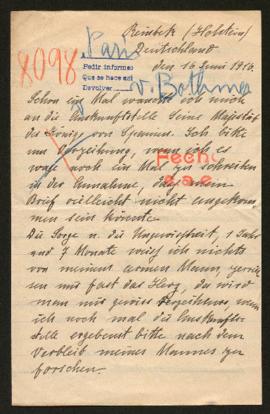 Reinbek (Holstein)
Deutschland
8098
Paris
den 16. Juni 1916.
Pedir informes
Que se hace así
Devolver
v. Bothmer
Schon ein Mal wandte ich mich
an die Auskunftstelle Seine Majestät
des Königs von Spanien. Ich bitte
um Verzeihung, wenn ich es
wage noch ein Mal zu schreiben
Fecha
in der Annahme, dass mein
Brief vielleicht nicht angekom-
men sein könnte.
Die Sorge u. die Ungewissheit, 1 Jahr
und 7 Monate weiss ich nichts
von meinem armen Mann, zerreis-
sen mir fast das Herz, da wird
man mir gewiss verzeihen, wenn
ich noch mal die Auskunft-
stelle ergebenst bitte nach dem
Verbleib meines Mannes zu
forschen.